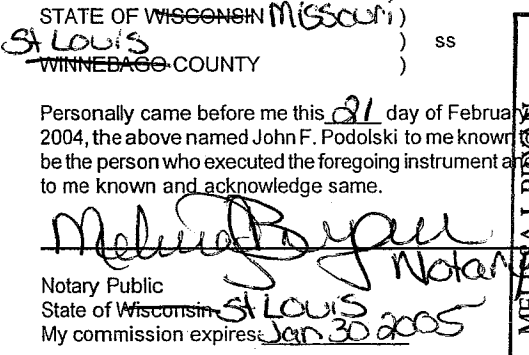 STATE OF WISCONSIN Missouri )
St Louis ) ss
WINNEBAGO COUNTY )
Personally came before me this 21 day of Februar
2004, the above named John F. Podolski to me known
be the person who executed the foregoing instrument an
to me known and acknowledge same.
Bryan
Notar
Notary Public
State of Wisconsin St Louis
My commission expires: Jan 30 2005